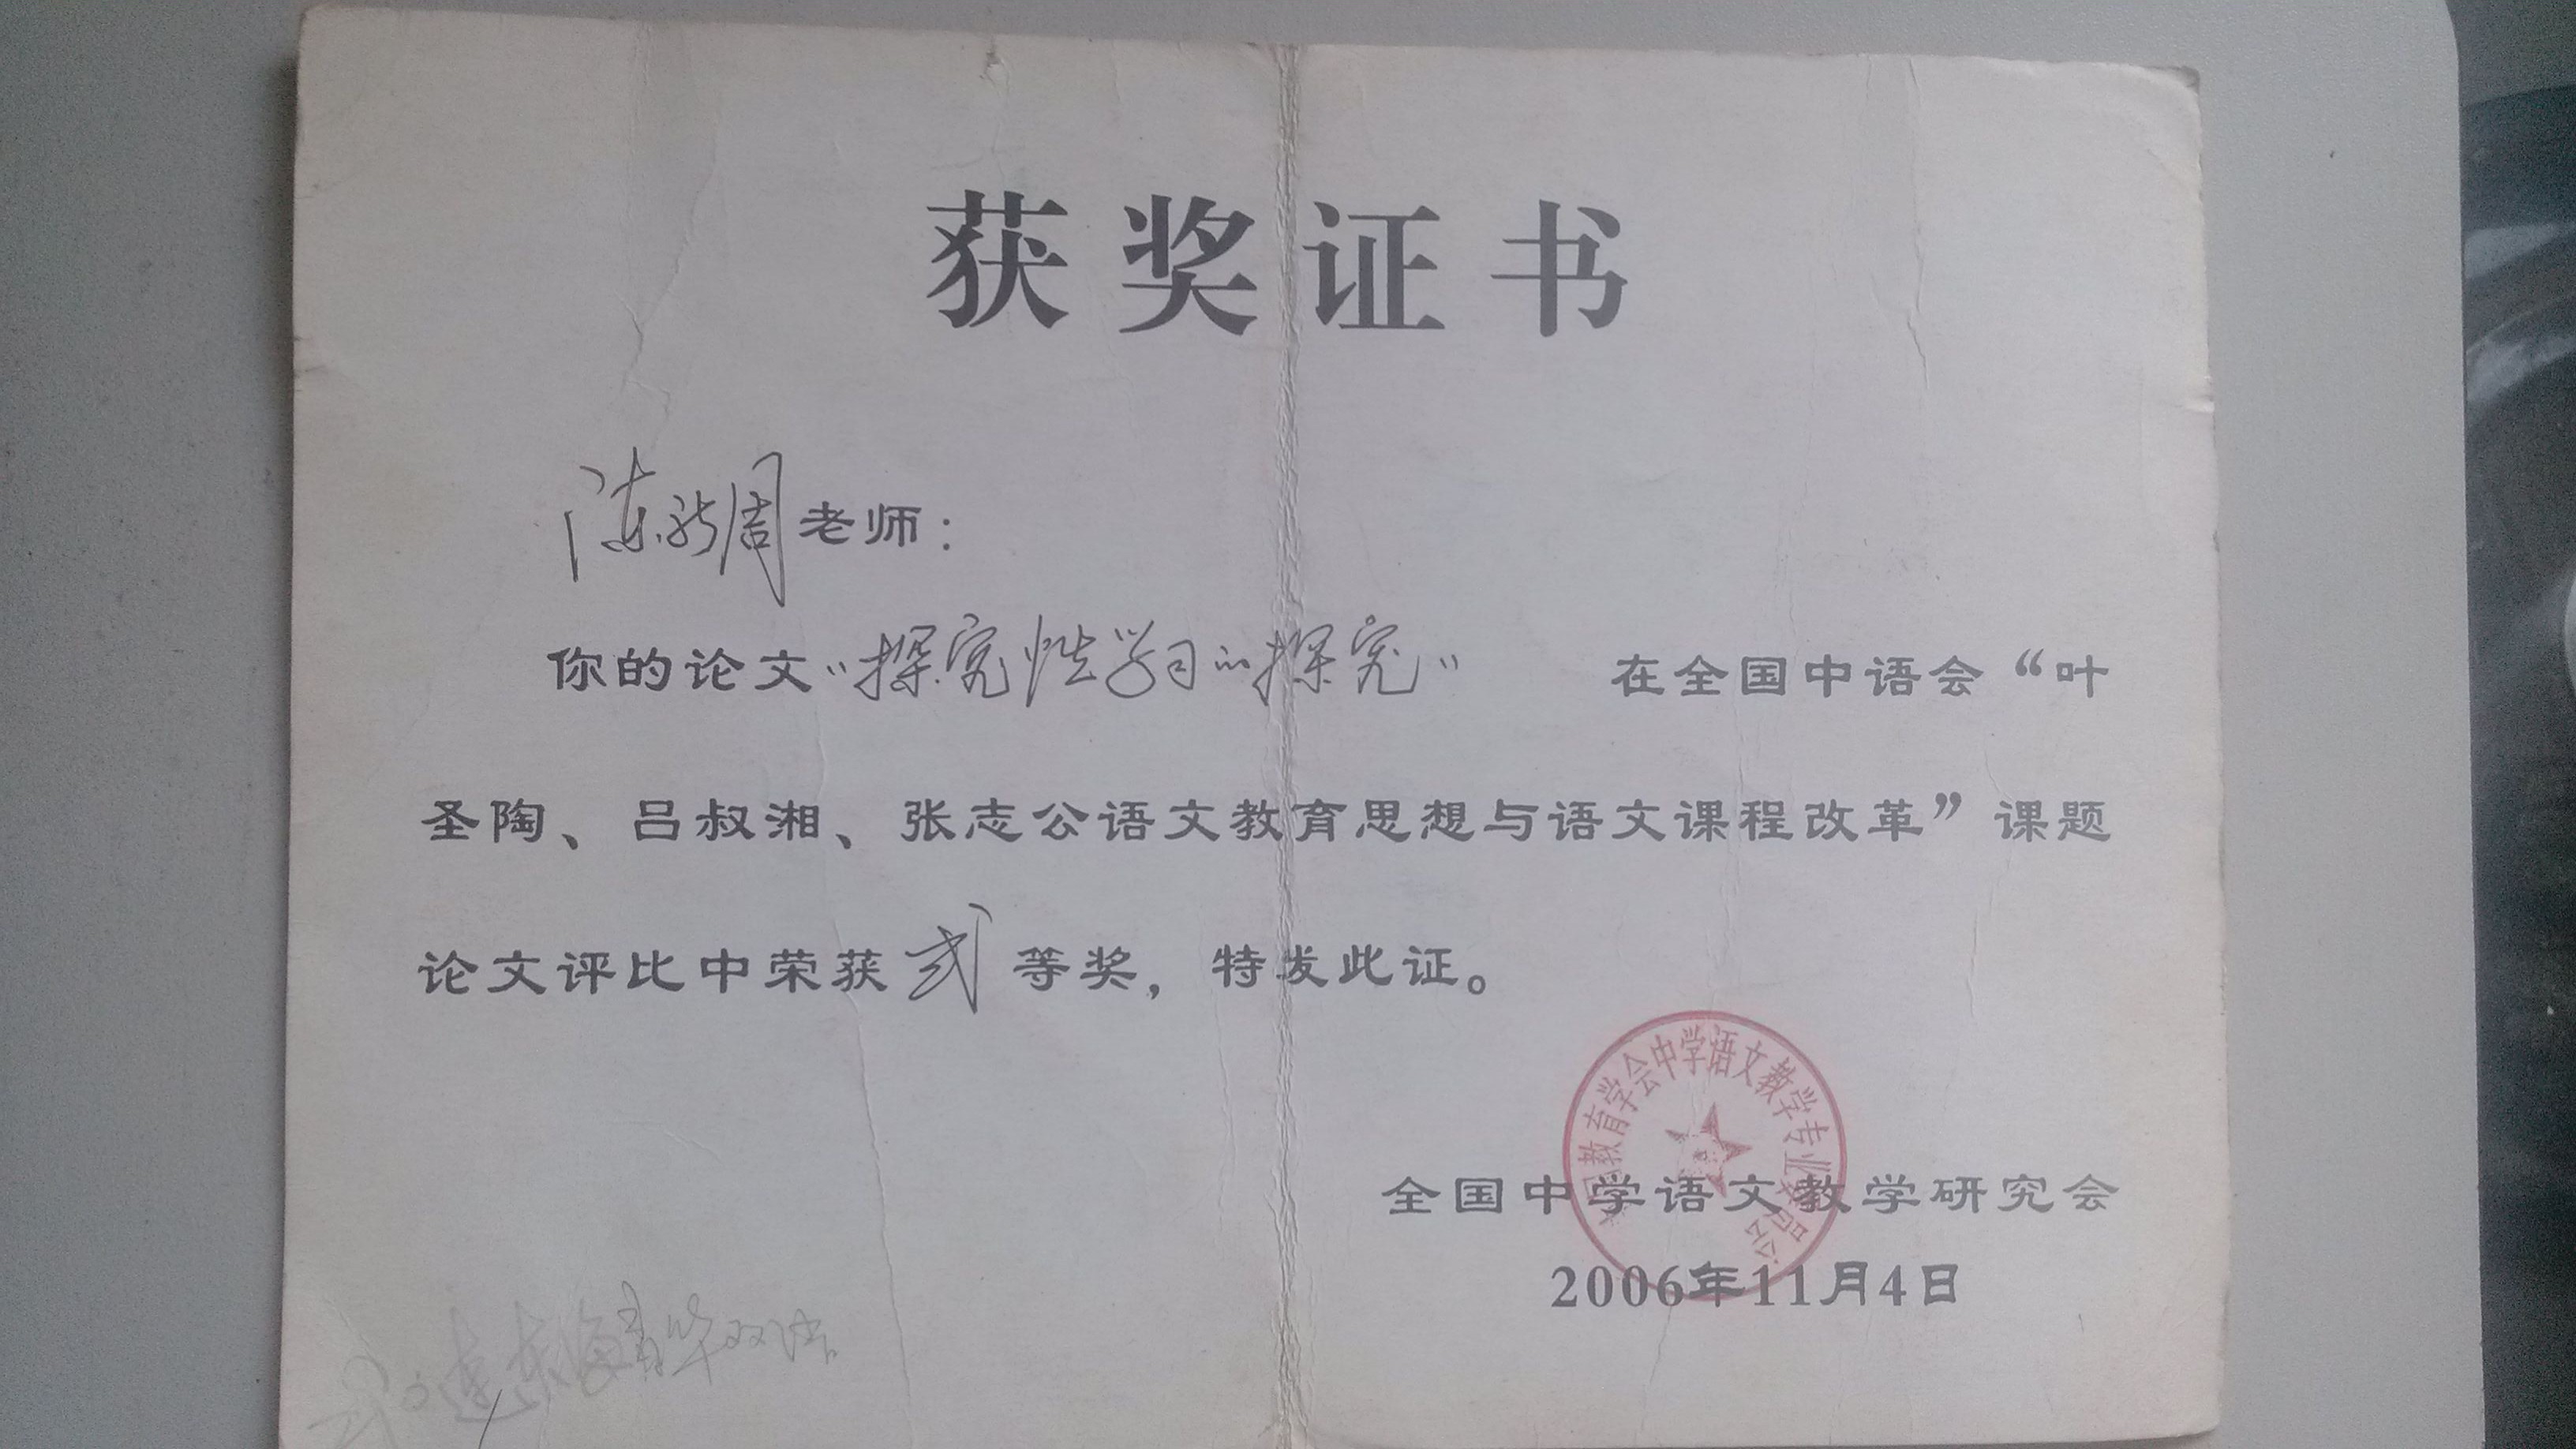 获奖证书
陈新周老师：
你的论文“探究性学习的探究”　在全国中语会“叶
圣陶、吕叔湘、张志公语文教育思想与语文课程改革”课题
论文评比中荣获 弍 等奖，特发此证。
中国教育学会中学语文教学专业委员会
全国中学语文教学研究会
2006年11月4日